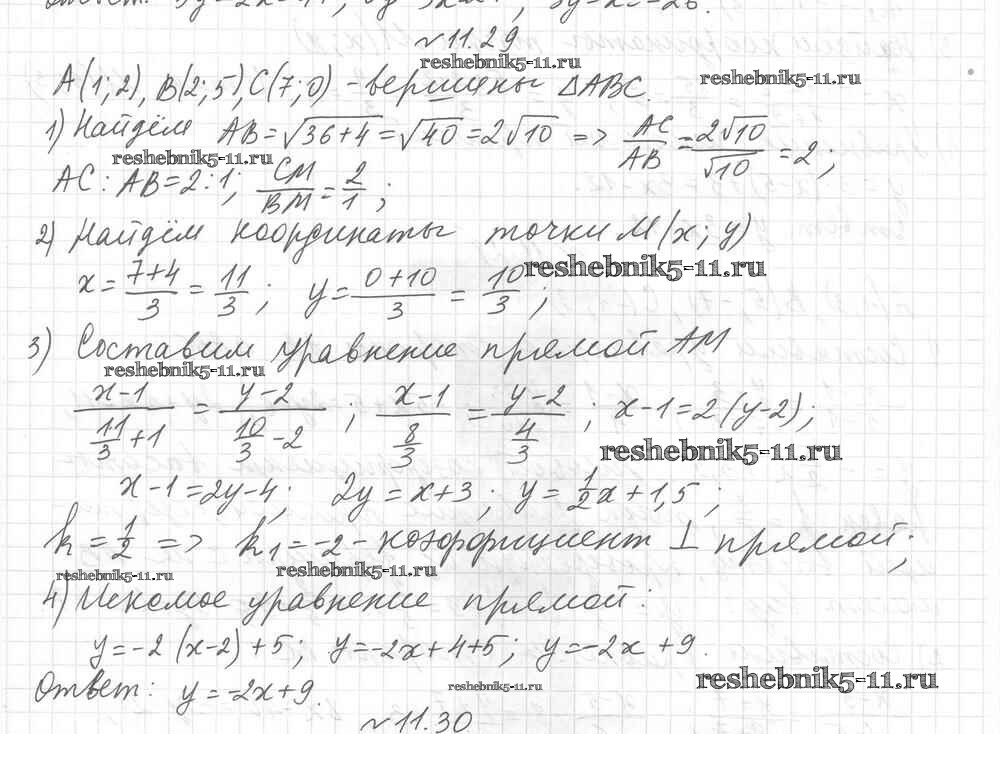 Ответ: 3y=2x-11; 3y=x-26.
№11.29
reshebnik5-11.ru
A(1;2), B(2;5), C(7;0) - вершины ΔABC.
reshebnik5-11.ru
1) Найдём AB=√36+4=√40=2√10 => AC/AB=2√10/√10=2;
reshebnik5-11.ru
AC:AB=2:1; CM/BM=2/1;
2) Найдём координаты точки M(x;y)
reshebnik5-11.ru
x=7+4/3=11/3; y=0+10/3=10/3;
3) Составим уравнение прямой AM
reshebnik5-11.ru
x-1/11/3+1=y-2/10/3-2; x-1/8/3=y-2/4/3; x-1=2(y-2);
reshebnik5-11.ru
x-1=2y-4; 2y=x+3; y=1/2x+1,5;
k=1/2 => k₁=-2 - коэффициент ⊥ прямой;
reshebnik5-11.ru reshebnik5-11.ru
4) Искомое уравнение прямой:
y=-2(x-2)+5; y=-2x+4+5; y=-2x+9.
reshebnik5-11.ru reshebnik5-11.ru
Ответ: y=-2x+9.
№11.30